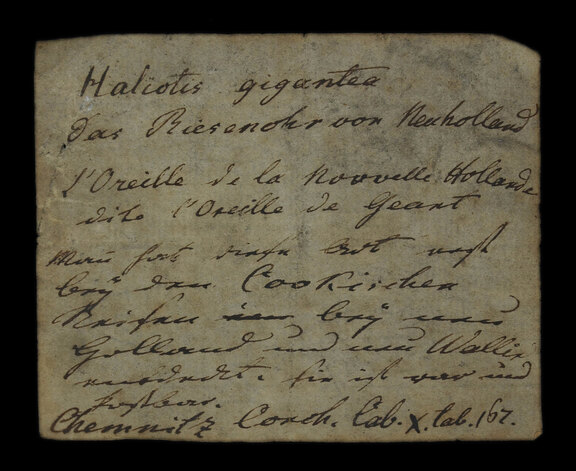 Haliotis gigantea
Das Riesenohr von Neuholland
l'Oreille de la Nouvelle Hollande
dite l'Oreille de Geant
Man hat diese Art erst
bey den Cookischen
Reisen bey neu
Holland und neu Wallis
entdeckt. Sie ist rar und
kostbar.
Chemnitz Conch. Cab. X. tab. 167.